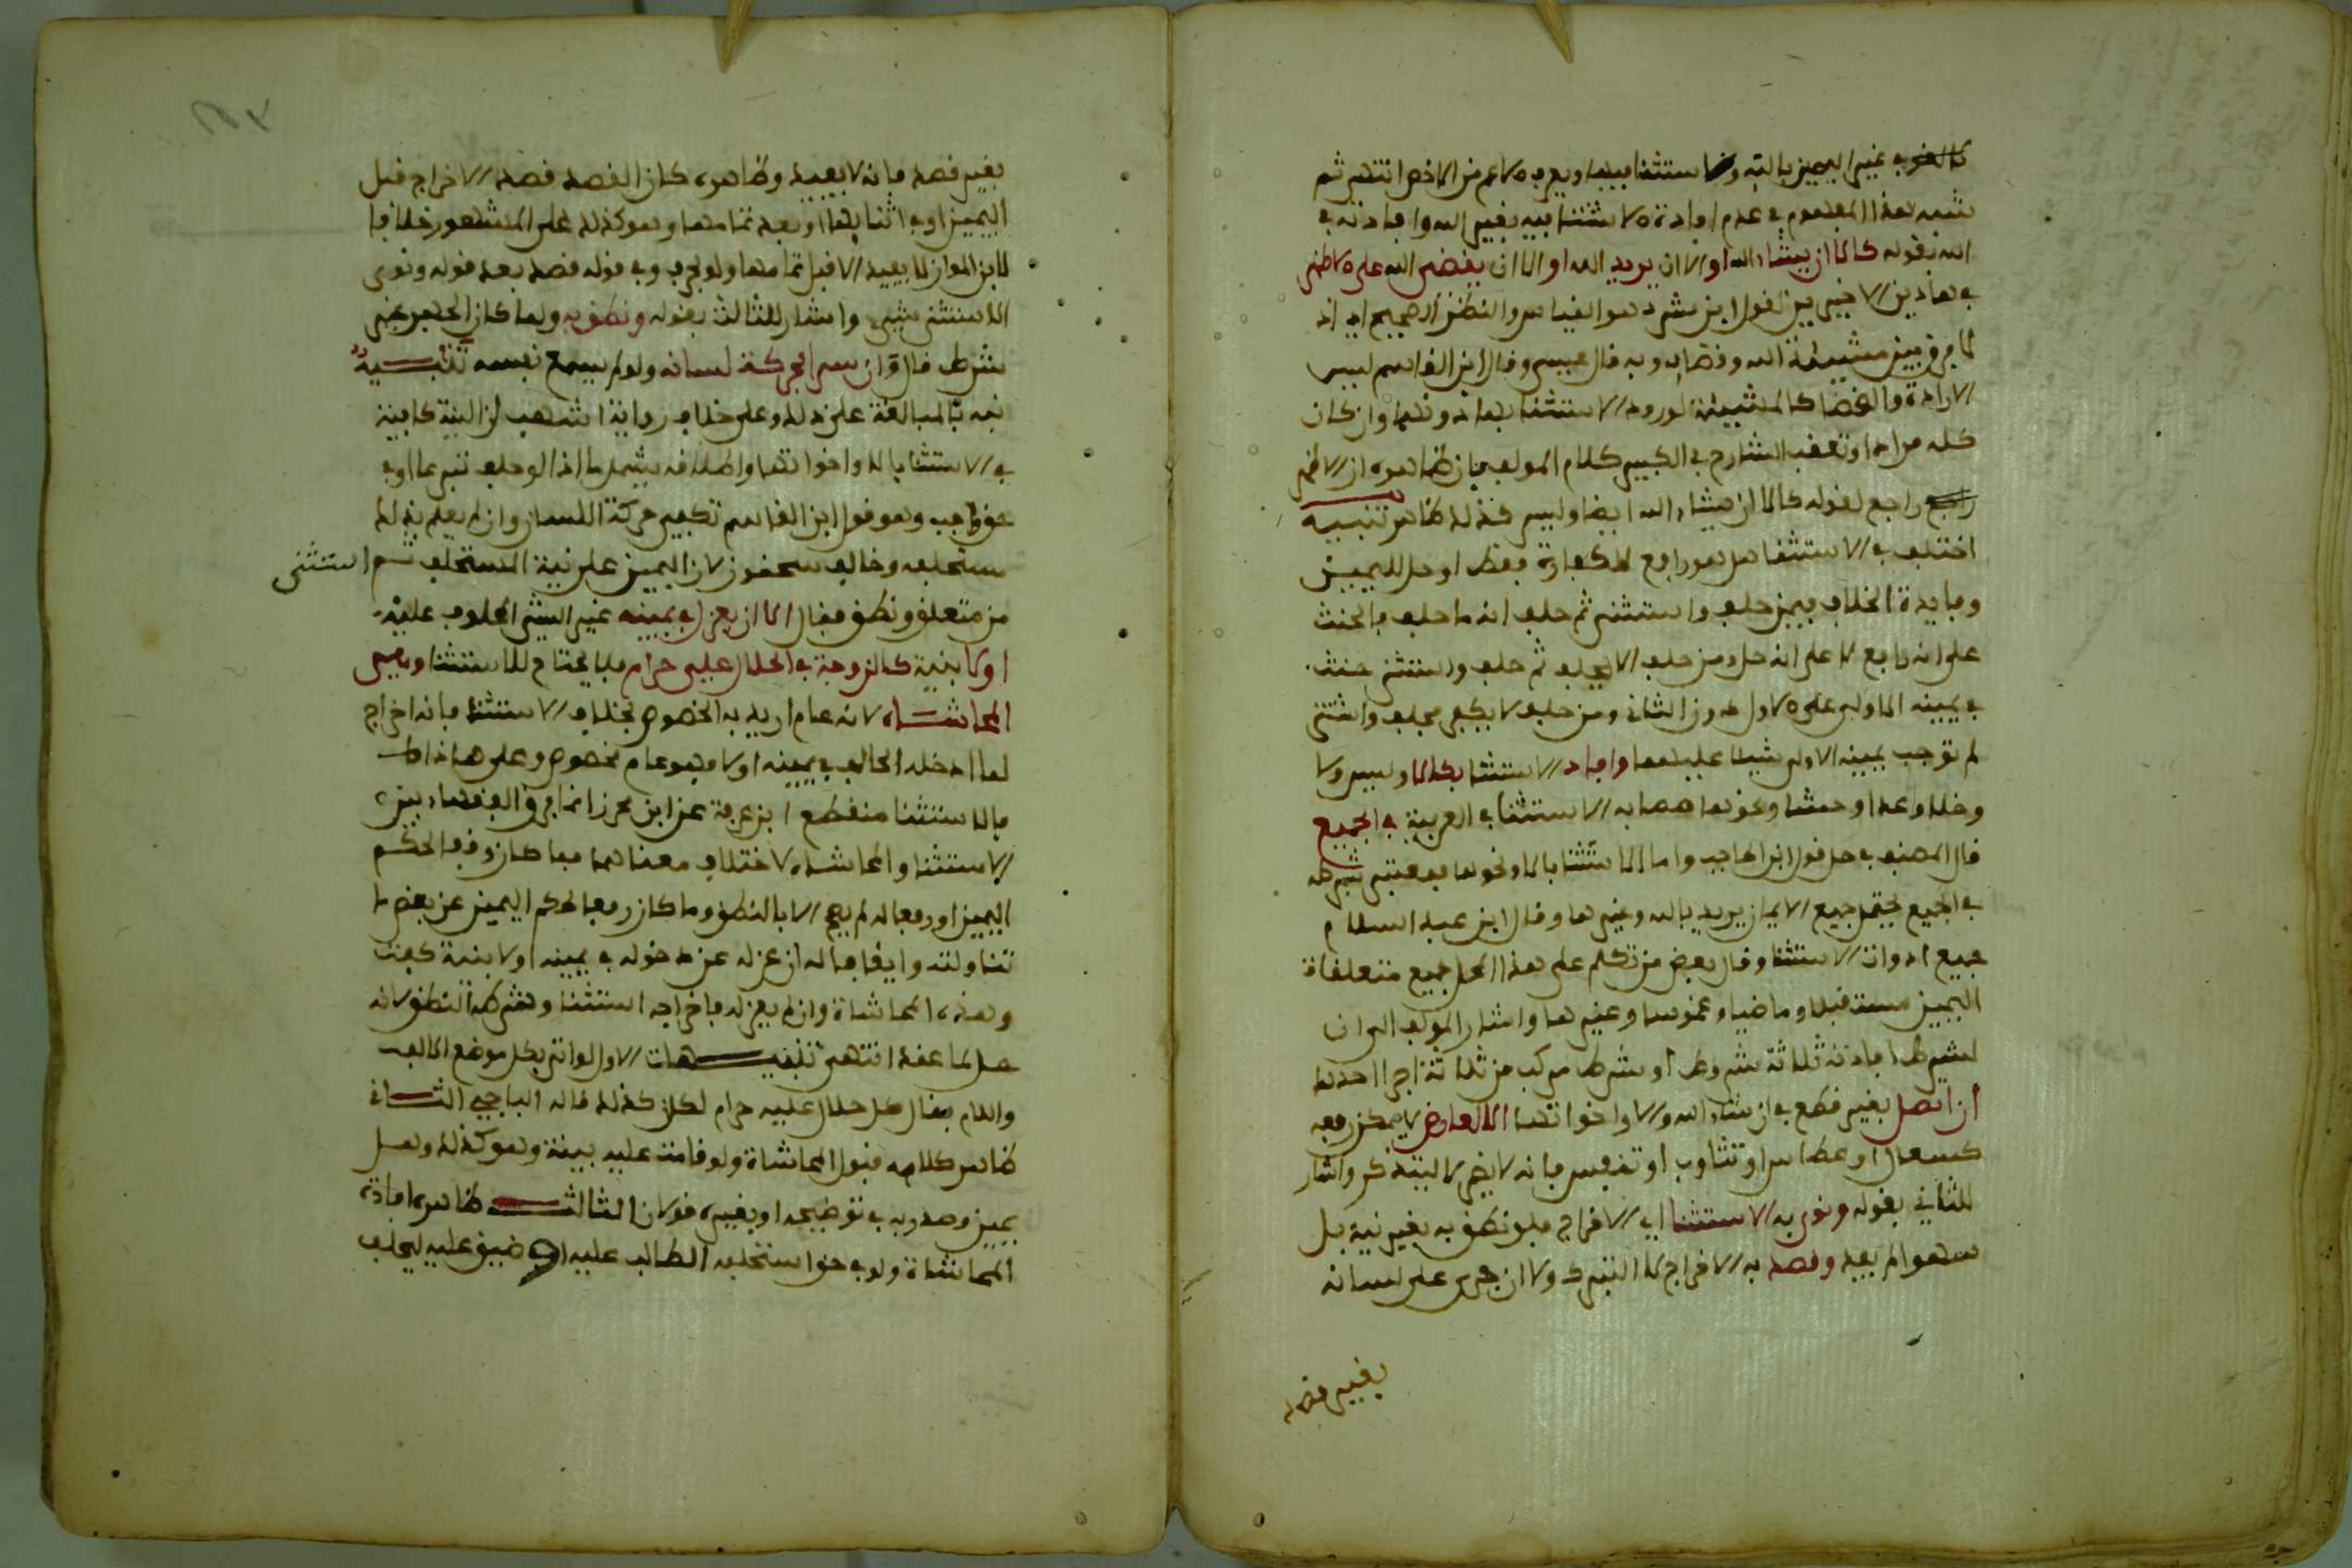 كاللغو في غير اليمين بالله و استثنا فيها ويعرف الاعم من الاخص انتهى ثم
شبه بهذا المفهوم في عدم افادة الاستثنا فيه بغير الله وافادته في
الله بقوله كالا ان يشاء الله او الا ان يريد الله او الا ان يقضي الله على الاظهر
في هاذين الاخيرين لقول ابن رشد هو القياس والنظر الصحيح اي اذ
لا فرق بين مشيئة الله وقضايه وبه قال عيسى وقال ابن القاسم ليس
الارادة والقضا كالمشيئة لورود الاستثنا بها دونهما وان كان
كله مرادا وتعقب الشارح في الكبير كلام المولف بان ظاهره ان الاظهر
راجع لقوله كالا ان يشاء الله ايضا وليس كذلك ظاهر تنبيه
اختلف في الاستثنا هل هو رافع للكفارة فقط او حل لليمين
وفايدة الخلاف فيمن حلف واستثنى ثم حلف انه ما حلف فالحنث
على انه رافع لا على انه حل ومن حلف لا يحلف ثم حلف واستثنى حنث
في يمينه الاولى على الاول دون الثاني ومن حلف لا يكفر فحلف واستثنى
لم توجب يمينه الاولى شيئا عليهما وافاد الاستثنا بكالا وليس ولا
وخلا وعدا وحشا ونحوها مما به الاستثنا في العربية في الجميع
قال المصنف في حل قول ابن الحاجب واما الاستثنا بالا ونحوها فمعتبر بشرطه
في الجميع يحتمل جميع الايمان يريد بالله وغيرها وقال ابن عبد السلام
جميع ادوات الاستثنا وقال بعض من تكلم على هذا المحل جميع متعلقات
اليمين مستقبلا وماضيا وغموسا وغيرها واشار المولف الى ان
لشرط افادته ثلاثة شروط او شرط مركب من ثلاثة اجزا احدها
ان اتصل بغير قطع في ان شاء الله والا واخواتها الا لعارض لا يمكن رفعه
كسعال او عطاس او تثاوب او تنفس فانه لا يضر لا لتذكر واشار
للثاني بقوله ونوى به الاستثنا اي الاخراج فلو نطق به بغير نية بل
سهوا لم يفد وقصد به الاخراج لا التبرك ولا ان جرى على لسانه
بغير قصد
بغير قصد فانه لا يفيد وظاهره كان القصد قصد الاخراج قبل
اليمين او في اثنايها او بعد تمامها وهو كذلك على المشهور خلافا
لابن المواز لا يفيد الا قبل تمامها ولو بحرف وفي قوله قصد بعد قوله ونوى
الاستثنى شيء واشار للثالث بقوله ونطق به ولما كان الجهر غير
شرط قال وان سرا بحركة لسانه ولو لم يسمع نفسه تنبيه
نبه بالمبالغة على ذلك وعلى خلاف رواية اشهب ان النية كافية
في الاستثنا بالا واخواتها واطلاقه يشمل ما اذا لو حلف تبرعا او في
حق واجب وهو قول ابن القاسم تكفي حركة اللسان وان لم يعلم بذلك
مستحلفه وخالف سحنون لان اليمين على نية المستحلف ثم استثنى
من متعلق ونطق فقال الا ان يعزل في يمينه غير الشي المحلوف عليه
اولا بنية كالزوجة في الحلال علي حرام فلا يحتاج للاستثنا وهي
المحاشاه لانه عام اريد به الخصوص بخلاف الاستثنا فانه اخراج
لما ادخله الحالف في يمينه اولا فهو عام مخصوص وعلى هاذا
فالاستثنا منقطع ابن عرفة عن ابن محرز انما فرق الفقهاء بين
الاستثنا والمحاشاه لاختلاف معناهما فما كان وقفا لحكم
اليمين او رفعا له لم يصح الا بالنطق وما كان رفعا لحكم اليمين عن بعض ما
تناولته وايقافا له ان عزله عن دخوله في يمينه اولا بنية كفت
وهذه المحاشاة وان لم يعزله فاخراجه استثنا وشرطه النطق لانه
حل لما عقد انتهى تنبيهات الاول لو اتى بكل موضع الالف
واللام فقال كل حلال عليه حرام لكان كذلك قاله الباجي الثاني
ظاهر كلامه قبول المحاشاة ولو قامت عليه بينة وهو كذلك وهل
بيمين وصدر به في توضيحه او بغيره قولان الثالث ظاهره افادة
المحاشاة ولو في حق استحلفه الطالب عليه او ضيق عليه ليحلف